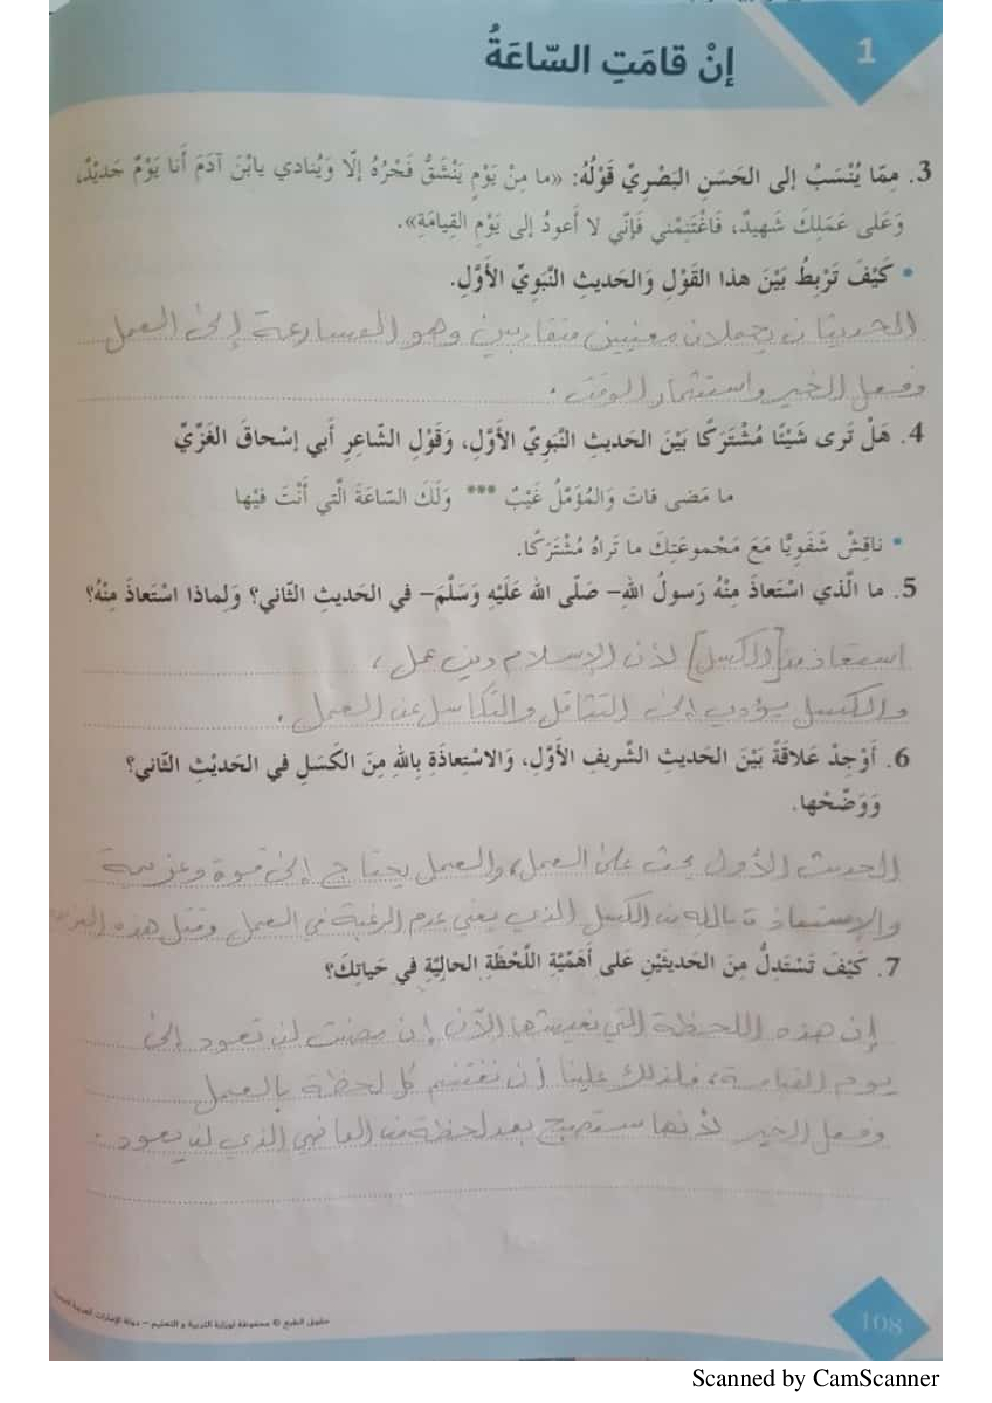 1
إنْ قامَتِ السّاعَةُ
3. مِمّا يُنْسَبُ إلى الحَسَنِ البَصْرِيِّ قَوْلُهُ: «ما مِنْ يَوْمٍ يَنْشَقُّ فَجْرُهُ إلّا وَيُنادي يابْنَ آدَمَ أَنا يَوْمٌ جَديدٌ،
وَعَلى عَمَلِكَ شَهيدٌ، فَاغْتَنِمْني فَإنّي لا أَعودُ إلى يَوْمِ القِيامَةِ».
• كَيْفَ تَرْبِطُ بَيْنَ هذا القَوْلِ وَالحَديثِ النَّبَوِيِّ الأَوَّلِ.
الحديثان يحملان معنيين متقاربين وهو المسارعة إلى العمل
وفعل الخير واستثمار الوقت .
4. هَلْ تَرى شَيْئًا مُشْتَرَكًا بَيْنَ الحَديثِ النَّبَوِيِّ الأَوَّلِ، وَقَوْلِ الشّاعِرِ أَبي إسْحاقَ الغَزِّيِّ
ما مَضى فاتَ وَالمُؤَمَّلُ غَيْبٌ *** وَلَكَ السّاعَةَ الَّتي أَنْتَ فيْها
• ناقِشْ شَفَوِيًّا مَعَ مَجْموعَتِكَ ما تَراهُ مُشْتَرَكًا.
5. ما الَّذي اسْتَعاذَ مِنْهُ رَسولُ اللهِ– صَلّى اللهُ عَلَيْهِ وَسَلَّمَ– في الحَديثِ الثّاني؟ وَلِماذا اسْتَعاذَ مِنْهُ؟
استعاذ من [الكسل] لأن الإسلام دين عمل ،
والكسل يؤدي إلى التثاقل والتكاسل عن العمل .
6. أَوْجِدْ عَلاقَةً بَيْنَ الحَديثِ الشَّريفِ الأَوَّلِ، وَالاسْتِعاذَةِ بِاللهِ مِنَ الكَسَلِ في الحَديْثِ الثّاني؟
وَوَضِّحْها.
الحديث الأول يحث على العمل، والعمل يحتاج إلى قوة وعزيمة
والإستعاذة بالله من الكسل الذي يعني عدم الرغبة في العمل وقتل هذه
7. كَيْفَ تَسْتَدِلُّ مِنَ الحَديثَيْنِ عَلى أَهَمِّيَّةِ اللَّحْظَةِ الحاليَّةِ في حَياتِكَ؟
إن هذه اللحظة التي نعيشها الآن إن مضت لن تعود إلى
يوم القيامة، فلذلك علينا أن نغتنم كل لحظة بالعمل
وفعل الخير لأنها ستصبح بعد لحظة من الماضي الذي لن يعود .
حقوق الطبع © محفوظة لوزارة التربية و التعليم – دولة الإمارات العربية المتحدة
108
Scanned by CamScanner